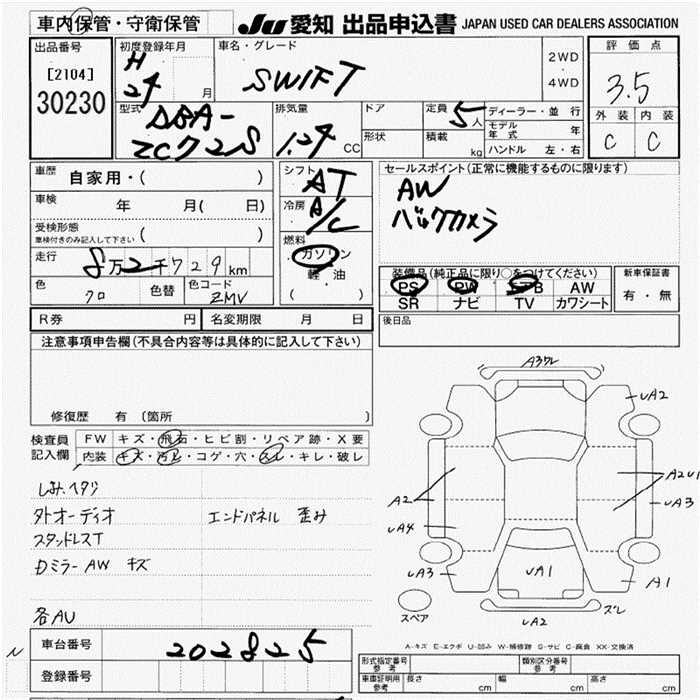 車内保管・守衛保管
JU 愛知 出品申込書 JAPAN USED CAR DEALERS ASSOCIATION
出品番号
[2104]
30230
初度登録年月
H
24
月
車名・グレード
SWIFT
2WD
・
4WD
評価点
3.5
外装 内装
C C
型式
DBA-
ZC72S
排気量
1.24
CC
ドア
形状
定員
5人
積載
kg
ディーラー・並行
モデル年式 年
ハンドル 左・右
車歴
自家用・( )
車検 年 月( 日)
受検形態
車検付きのみ記入して下さい ( )
走行
8万2千729km
色
クロ
色替
色コード
ZMV
シフト
AT
冷房
A/C
燃料
ガソリン
・
軽油
( )
セールスポイント(正常に機能するものに限ります)
AW
バックカメラ
装備品(純正品に限り○をつけてください)
PS PW エアB AW
SR ナビ TV カワシート
新車保証書
有・無
R券 円
名変期限 月 日
後日品
注意事項申告欄(不具合内容等は具体的に記入して下さい)
修復歴 有 〔箇所
検査員
記入欄
FW キズ・飛石・ヒビ割・リペア跡・X要
内装 キズ・汚レ・コゲ・穴・スレ・キレ・破レ
しみ.ヘタリ
外オーディオ エンドパネル 歪み
スタッドレスT
Dミラー AW キズ
各AU
A3ワレ
UA2
A2
UA4
UA3
A2U1
UA3
UA1
A1
UA2
ズレ
スペア
A-キズ E-エクボ U-凹み W-補修跡 S-サビ C-腐食 XX-交換済
車台番号
202825
登録番号
型式指定番号
参考
類別区分番号
参考
車庫証明用
参考
長さ cm
幅 cm
高さ cm